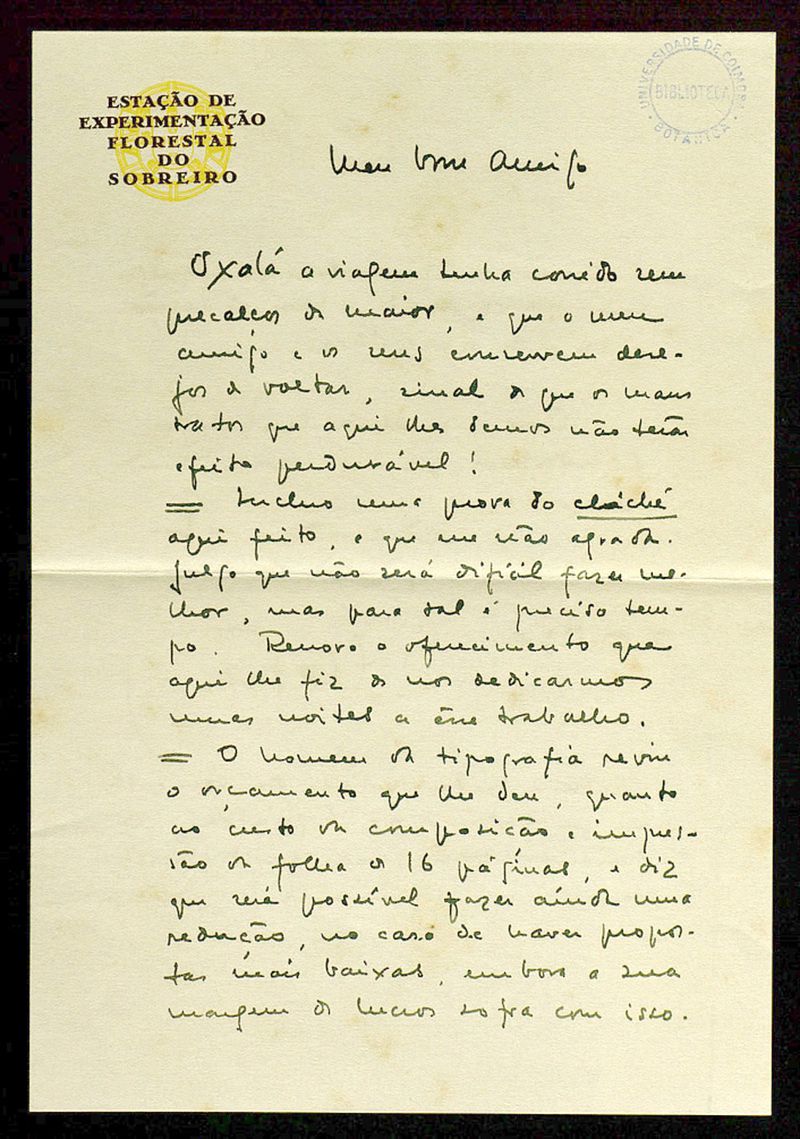 ESTAÇÃO DE
EXPERIMENTAÇÃO
FLORESTAL
DO
SOBREIRO
UNIVERSIDADE DE COIMBRA
BIBLIOTECA
BOTÂNICA
Meu bom Amigo
Oxalá a viagem tenha corrido sem
precalços de maior, e que o meu
amigo e os seus conservem dese-
jos de voltar, sinal de que os maus
tratos que aqui lhes demos não terão
efeito perdurável!
= Incluo uma prova do cliché
aqui feito, e que me não agrada.
Julgo que não será difícil fazer me-
lhor, mas para tal é preciso tem-
po. Renovo o oferecimento que
aqui lhe fiz de nos dedicarmos
umas noites a êsse trabalho.
= O homem da tipografia reviu
o orçamento que lhe deu, quanto
ao custo da composição e impres-
são da folha de 16 páginas, e diz
que será possível fazer ainda uma
redução, no caso de haver propos-
tas mais baixas, embora a sua
margem de lucros sofra com isso.